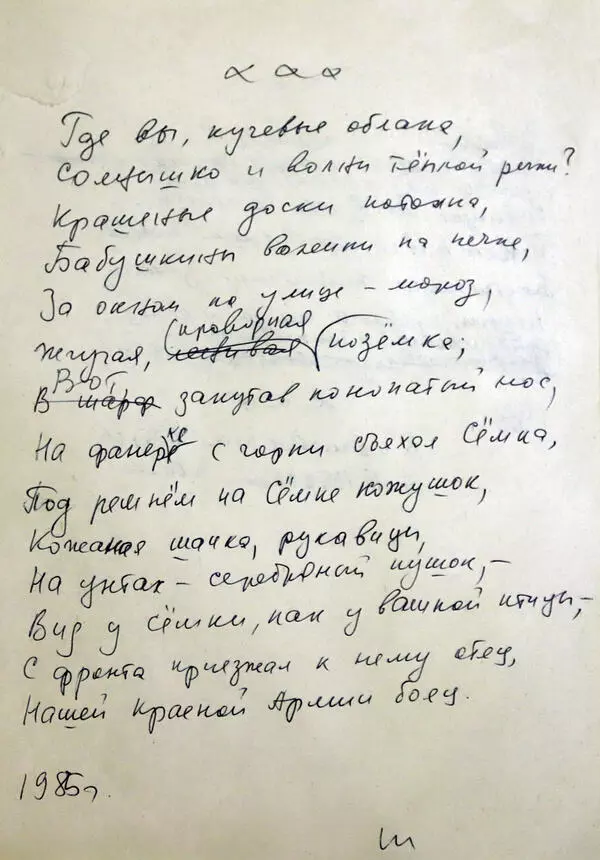 Где вы, кучевые облака,
Солнышко и волны тёплой речки?
Крашеные доски потолка,
Бабушкины валенки на печке,
За окном на улице – мороз,
Жгучая, проворная позёмка;
Вот, закутав конопатый нос,
На фанерке с горки съехал Сёмка,
Под ремнём на Сёмке кожушок,
Кожаная шапка, рукавицы,
На унтах – серебряный пушок, –
Вид у Сёмки, как у важной птицы, –
С фронта приезжал к нему отец,
Нашей Красной Армии боец.
1985г.